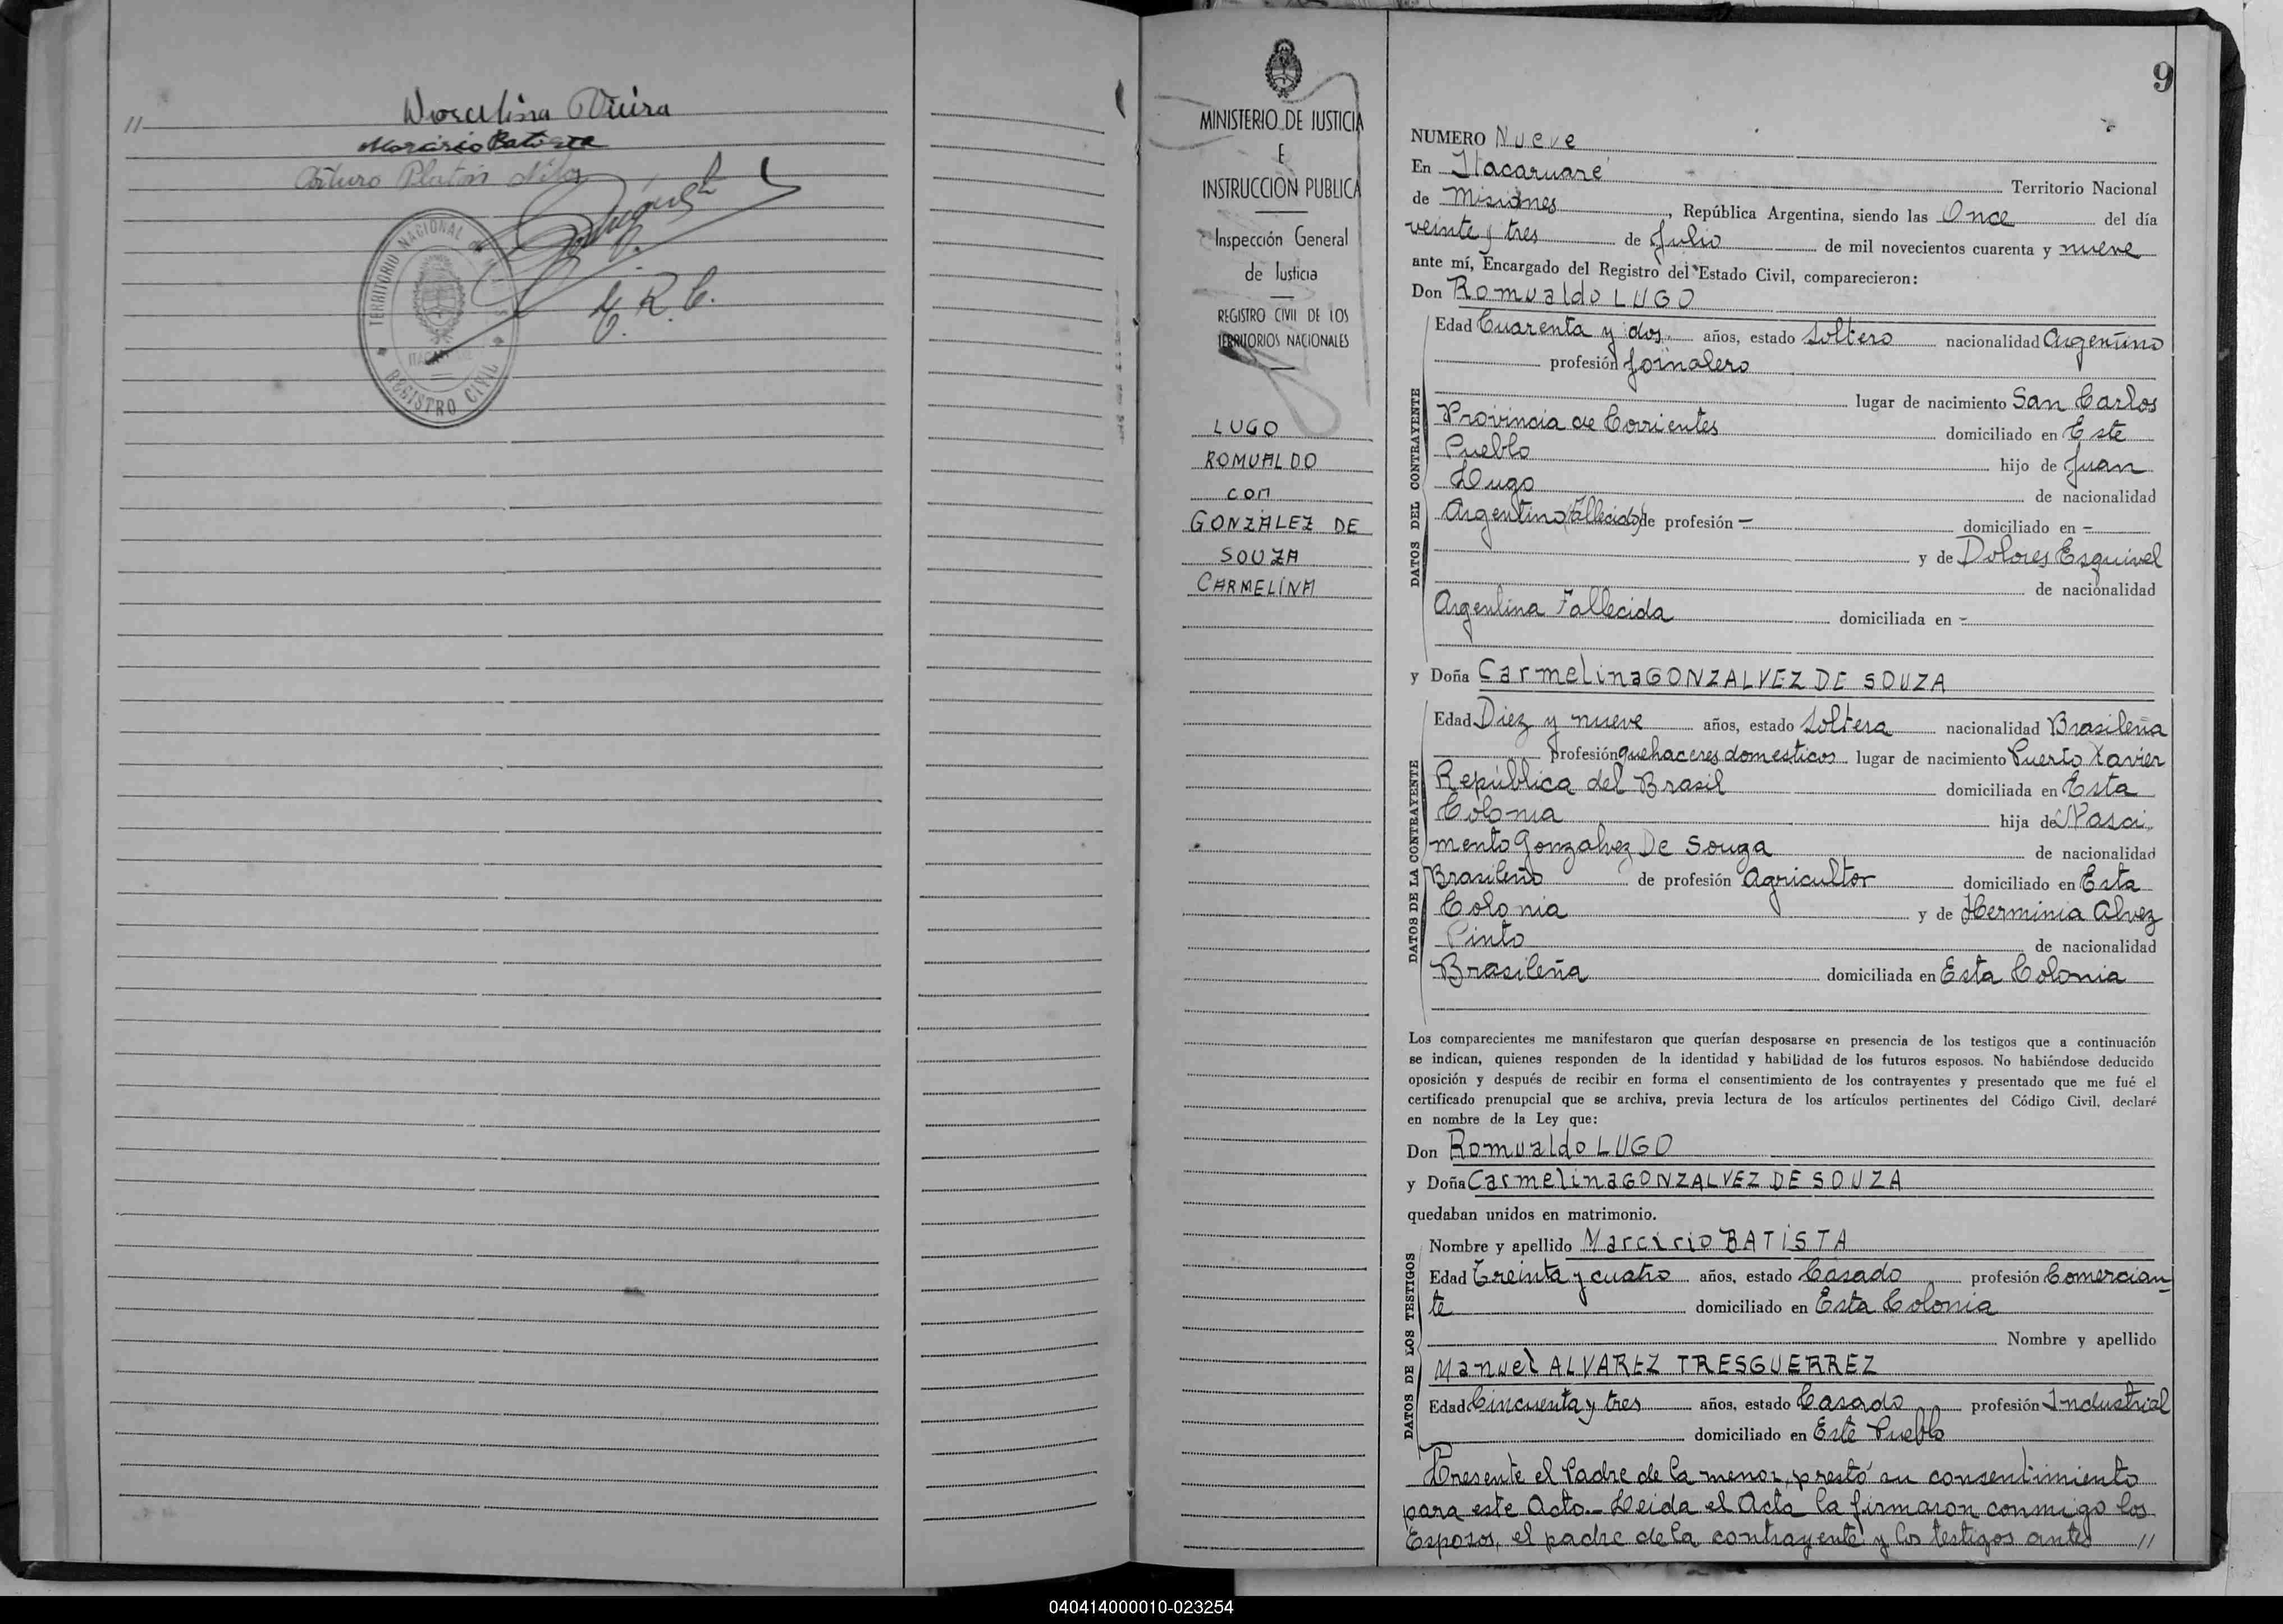 11
Marcirio Batista
Arturo Platon
E. R. C.
TERRITORIO NACIONAL
REGISTRO CIVIL
MINISTERIO DE JUSTICIA
E
INSTRUCCION PUBLICA
Inspección General
de Justicia
REGISTRO CIVIL DE LOS
TERRITORIOS NACIONALES
LUGO
ROMUALDO
CON
GONZALEZ DE
SOUZA
CARMELINA
9
NUMERO Nueve
En Itacaruaré Territorio Nacional
de Misiones, República Argentina, siendo las Once del día
veinte y tres de Julio de mil novecientos cuarenta y nueve
ante mí, Encargado del Registro del Estado Civil, comparecieron:
Don Romualdo LUGO
DATOS DEL CONTRAYENTE
Edad Cuarenta y dos años, estado Soltero nacionalidad Argentino
profesión Jornalero
lugar de nacimiento San Carlos
Provincia de Corrientes domiciliado en Este
Pueblo hijo de Juan
Lugo de nacionalidad
Argentino (fallecido) de profesión — domiciliado en —
y de Dolores Esquivel
de nacionalidad
Argentina Fallecida domiciliada en —
y Doña Carmelina GONZALVEZ DE SOUZA
DATOS DE LA CONTRAYENTE
Edad Diez y nueve años, estado Soltera nacionalidad Brasileña
profesión quehaceres domesticos lugar de nacimiento Puerto Xavier
República del Brasil domiciliada en Esta
Colonia hija de Nasci
mento Gonzalvez De Souza de nacionalidad
Brasileño de profesión Agricultor domiciliado en Esta
Colonia y de Herminia Alvez
Pinto de nacionalidad
Brasileña domiciliada en Esta Colonia
Los comparecientes me manifestaron que querían desposarse en presencia de los testigos que a continuación
se indican, quienes responden de la identidad y habilidad de los futuros esposos. No habiéndose deducido
oposición y después de recibir en forma el consentimiento de los contrayentes y presentado que me fué el
certificado prenupcial que se archiva, previa lectura de los artículos pertinentes del Código Civil, declaré
en nombre de la Ley que:
Don Romualdo LUGO
y Doña Carmelina GONZALVEZ DE SOUZA
quedaban unidos en matrimonio.
DATOS DE LOS TESTIGOS
Nombre y apellido Marcirio BATISTA
Edad Treinta y cuatro años, estado Casado profesión Comercian
te domiciliado en Esta Colonia
Nombre y apellido
Manuel ALVAREZ TRESGUERREZ
Edad Cincuenta y tres años, estado Casado profesión Industrial
domiciliado en Este Pueblo
Presente el Padre de la menor, prestó su consentimiento
para este Acto.- Leida el Acta la firmaron conmigo los
Esposos, el padre de la contrayente y los testigos antes //
040414000010-023254